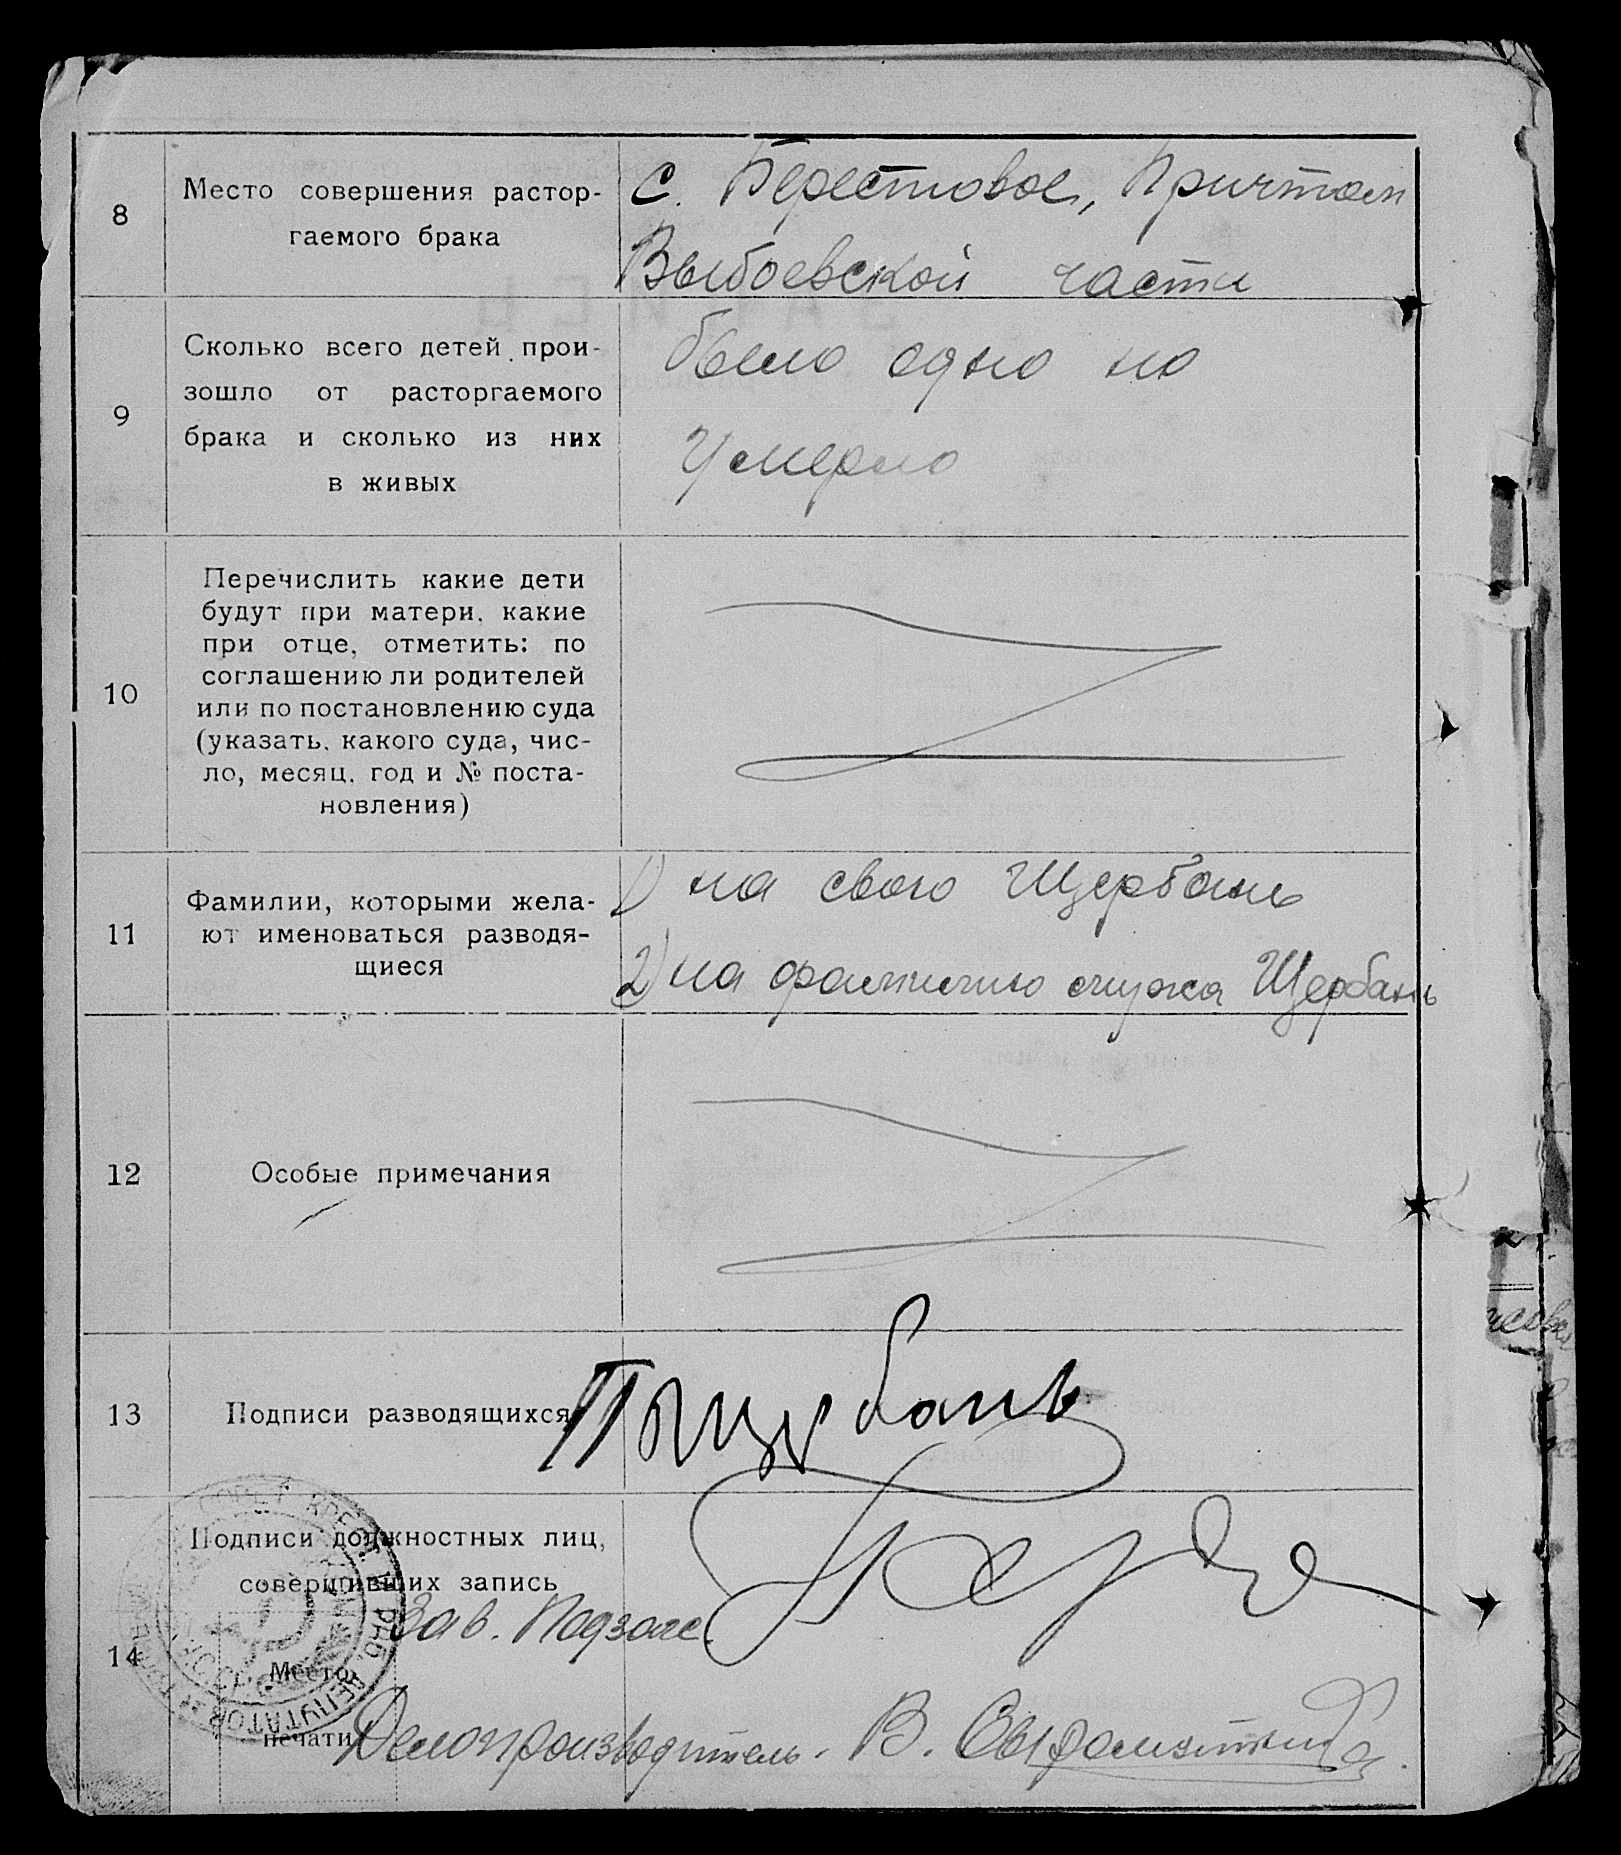 8
Место совершения растор-
гаемого брака
с. Берестовое, Причтом
Выбоевской части
9
Сколько всего детей прои-
зошло от расторгаемого
брака и сколько из них
в живых
было одно но
умерло
10
Перечислить какие дети
будут при матери, какие
при отце, отметить: по
соглашению ли родителей
или по постановлению суда
(указать, какого суда, чис-
ло, месяц, год и № поста-
новления)
11
Фамилии, которыми жела-
ют именоваться разводя-
щиеся
1) на свою Щербань
2) на фамилию мужа Щербань
12
Особые примечания
13
Подписи разводящихся
Щербань
14
Подписи должностных лиц,
совершивших запись
Зав. Подзагс
Место
печати
Делопроизводитель. В.